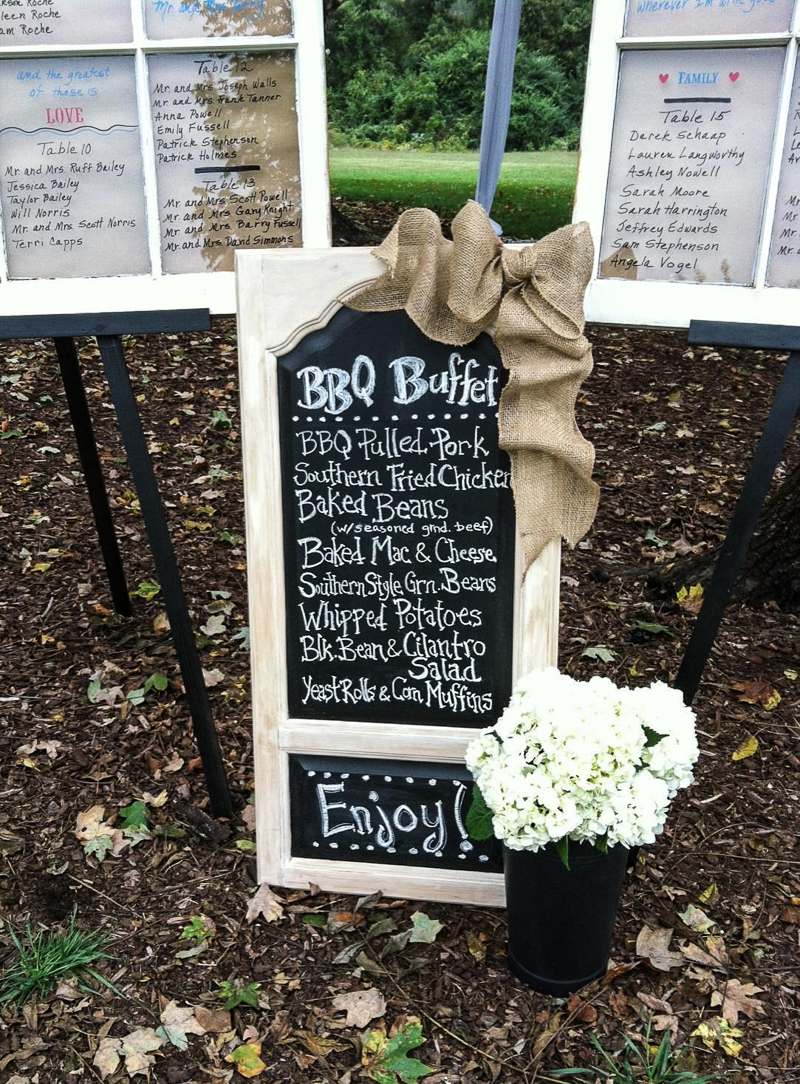 Roche
leen Roche
am Roche
Mr. and Mrs.
and the greatest
of these is
LOVE
Table 10
Mr and Mrs. Ruff Bailey
Jessica Bailey
Taylor Bailey
Will Norris
Mr. and Mrs. Scott Norris
Terri Capps
Table 12
Mr. and Mrs Joseph Walls
Mr. and Mrs Frank Tanner
Anna Powell
Emily Fussell
Patrick Stephenson
Patrick Holmes
Table 13
Mr. and Mrs Scott Powell
Mr. and Mrs. Gary Knight
Mr. and Mrs. Barry Fussell
Mr. and Mrs. David Simmons
wherever I'm with you
FAMILY
Table 15
Derek Schaap
Lauren Langworthy
Ashley Nowell
Sarah Moore
Sarah Harrington
Jeffrey Edwards
Sam Stephenson
Angela Vogel
BBQ Buffet
BBQ Pulled Pork
Southern Fried Chicken
Baked Beans
(w/seasoned grnd. beef)
Baked Mac & Cheese
Southern Style Grn. Beans
Whipped Potatoes
Blk. Bean & Cilantro
Salad
Yeast Rolls & Corn Muffins
Enjoy!